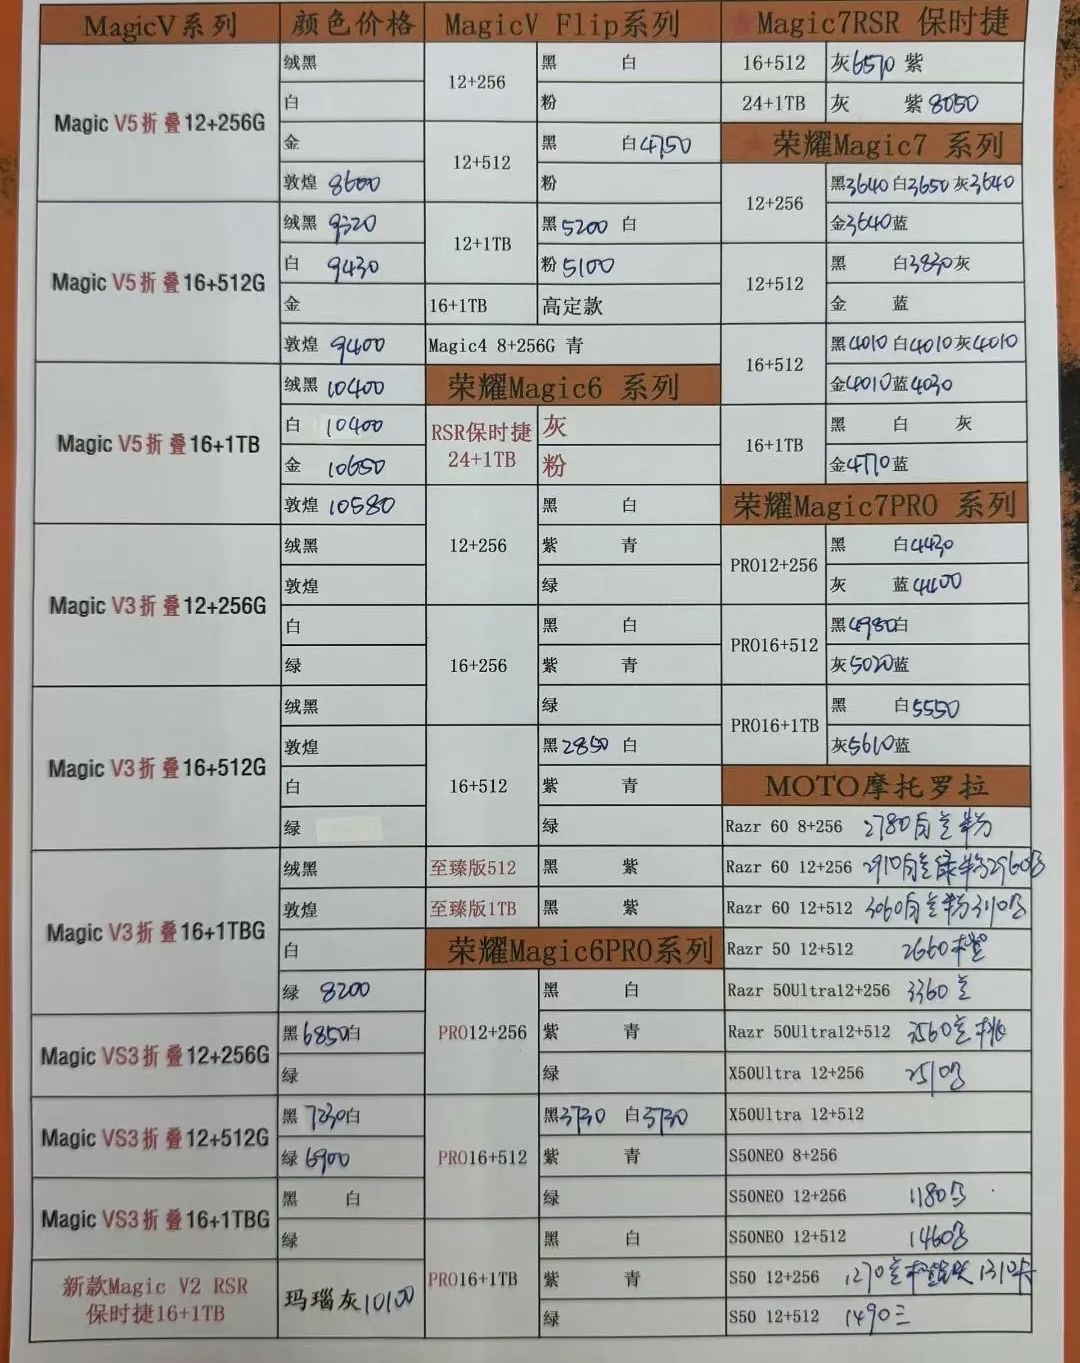 MagicV系列 颜色价格
Magic V5折叠12+256G
绒黑
白
金
敦煌 8600
Magic V5折叠16+512G
绒黑 9320
白 9430
金
敦煌 9400
Magic V5折叠16+1TB
绒黑 10400
白 10400
金 10650
敦煌 10580
Magic V3折叠12+256G
绒黑
敦煌
白
绿
Magic V3折叠16+512G
绒黑
敦煌
白
绿
Magic V3折叠16+1TBG
绒黑
敦煌
白
绿 8200
Magic VS3折叠12+256G
黑6850白
绿
Magic VS3折叠12+512G
黑 7230白
绿 6900
Magic VS3折叠16+1TBG
黑 白
绿
新款Magic V2 RSR
保时捷16+1TB
玛瑙灰10100
MagicV Flip系列
12+256
黑 白
粉
12+512
黑 白4750
粉
12+1TB
黑5200 白
粉5100
16+1TB 高定款
Magic4 8+256G 青
荣耀Magic6 系列
RSR保时捷
24+1TB
灰
粉
12+256
黑 白
紫 青
绿
16+256
黑 白
紫 青
绿
16+512
黑2850 白
紫 青
绿
至臻版512 黑 紫
至臻版1TB 黑 紫
荣耀Magic6PRO系列
PRO12+256
黑 白
紫 青
绿
PRO16+512
黑3730 白3730
紫 青
绿
PRO16+1TB
黑 白
紫 青
绿
★Magic7RSR 保时捷
16+512 灰6570 紫
24+1TB 灰 紫8050
★荣耀Magic7 系列
12+256
黑3640白3650灰3640
金3640蓝
12+512
黑 白3830灰
金 蓝
16+512
黑4010白4010灰4010
金4010蓝4030
16+1TB
黑 白 灰
金4770蓝
荣耀Magic7PRO 系列
PRO12+256
黑 白4430
灰 蓝4400
PRO16+512
黑4980白
灰5020蓝
PRO16+1TB
黑 白5550
灰5610蓝
MOTO摩托罗拉
Razr 60 8+256 2780
Razr 60 12+256 2910
Razr 60 12+512 3060
Razr 50 12+512 2660橙
Razr 50Ultra12+256 3360
Razr 50Ultra12+512 3560
X50Ultra 12+256 2510
X50Ultra 12+512
S50NEO 8+256
S50NEO 12+256 1180
S50NEO 12+512 1460
S50 12+256 1270
S50 12+512 1490三